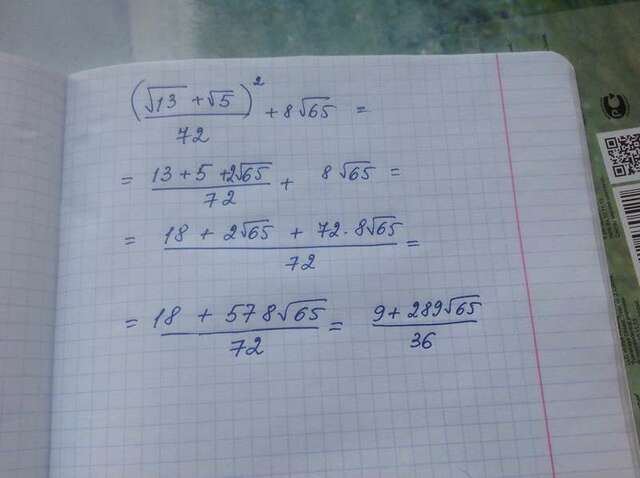 (√13 + √5)² / 72 + 8√65 =
= 13 + 5 + 2√65 / 72 + 8√65 =
= 18 + 2√65 + 72 · 8√65 / 72 =
= 18 + 578√65 / 72 = 9 + 289√65 / 36